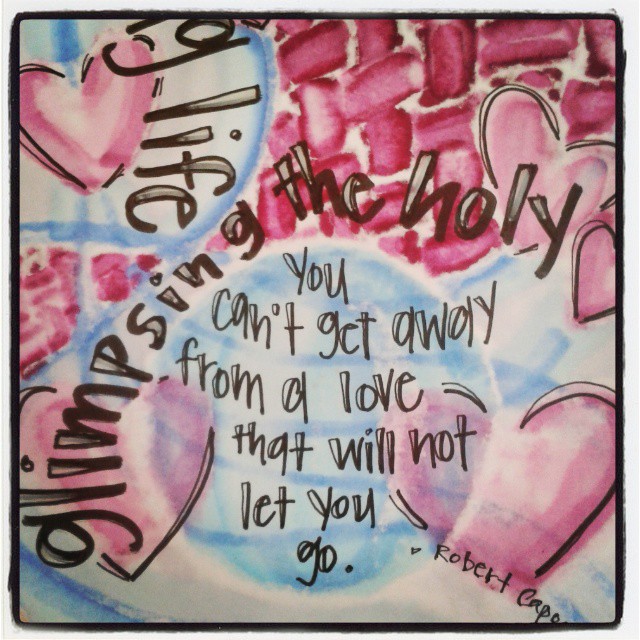 g life
glimpsing the holy
you
can't get away
from a love
that will not
let you
go.
Robert Capo